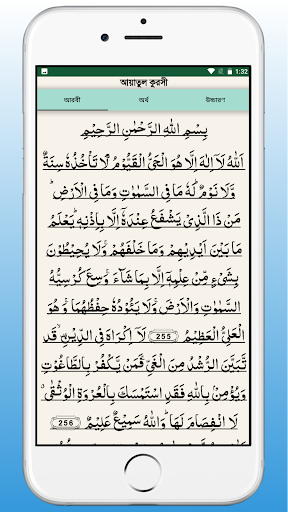 1:32
আয়াতুল কুরসী
আরবী অর্থ উচ্চারণ
بِسْمِ اللهِ الرَّحْمٰنِ الرَّحِيْمِ
اَللهُ لَآ اِلٰهَ اِلَّا هُوَ الْحَيُّ الْقَيُّوْمُ لَا تَاْخُذُهٗ سِنَةٌ
وَّلَا نَوْمٌ لَهٗ مَا فِى السَّمٰوٰتِ وَمَا فِى الْاَرْضِ
مَنْ ذَا الَّذِيْ يَشْفَعُ عِنْدَهٗٓ اِلَّا بِاِذْنِهٖ يَعْلَمُ
مَا بَيْنَ اَيْدِيْهِمْ وَمَا خَلْفَهُمْ وَلَا يُحِيْطُوْنَ
بِشَيْءٍ مِّنْ عِلْمِهٖٓ اِلَّا بِمَا شَآءَ وَسِعَ كُرْسِيُّهُ
السَّمٰوٰتِ وَالْاَرْضَ وَلَا يَئُوْدُهٗ حِفْظُهُمَا وَهُوَ
الْعَلِيُّ الْعَظِيْمُ 255 لَآ اِكْرَاهَ فِى الدِّيْنِ قَدْ
تَّبَيَّنَ الرُّشْدُ مِنَ الْغَيِّ فَمَنْ يَّكْفُرْ بِالطَّاغُوْتِ
وَيُؤْمِنْۢ بِاللهِ فَقَدِ اسْتَمْسَكَ بِالْعُرْوَةِ الْوُثْقٰى
لَا انْفِصَامَ لَهَا وَاللهُ سَمِيْعٌ عَلِيْمٌ 256